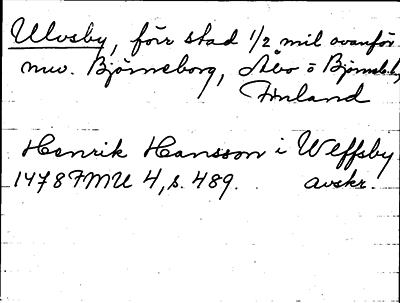 Ulvsby, förr stad 1/2 mil ovanför
nuv. Björneborg, Åbo o Björneb.
Finland
Henrik Hansson i Wlffsby
1478 FMU 4, s. 489. avskr.